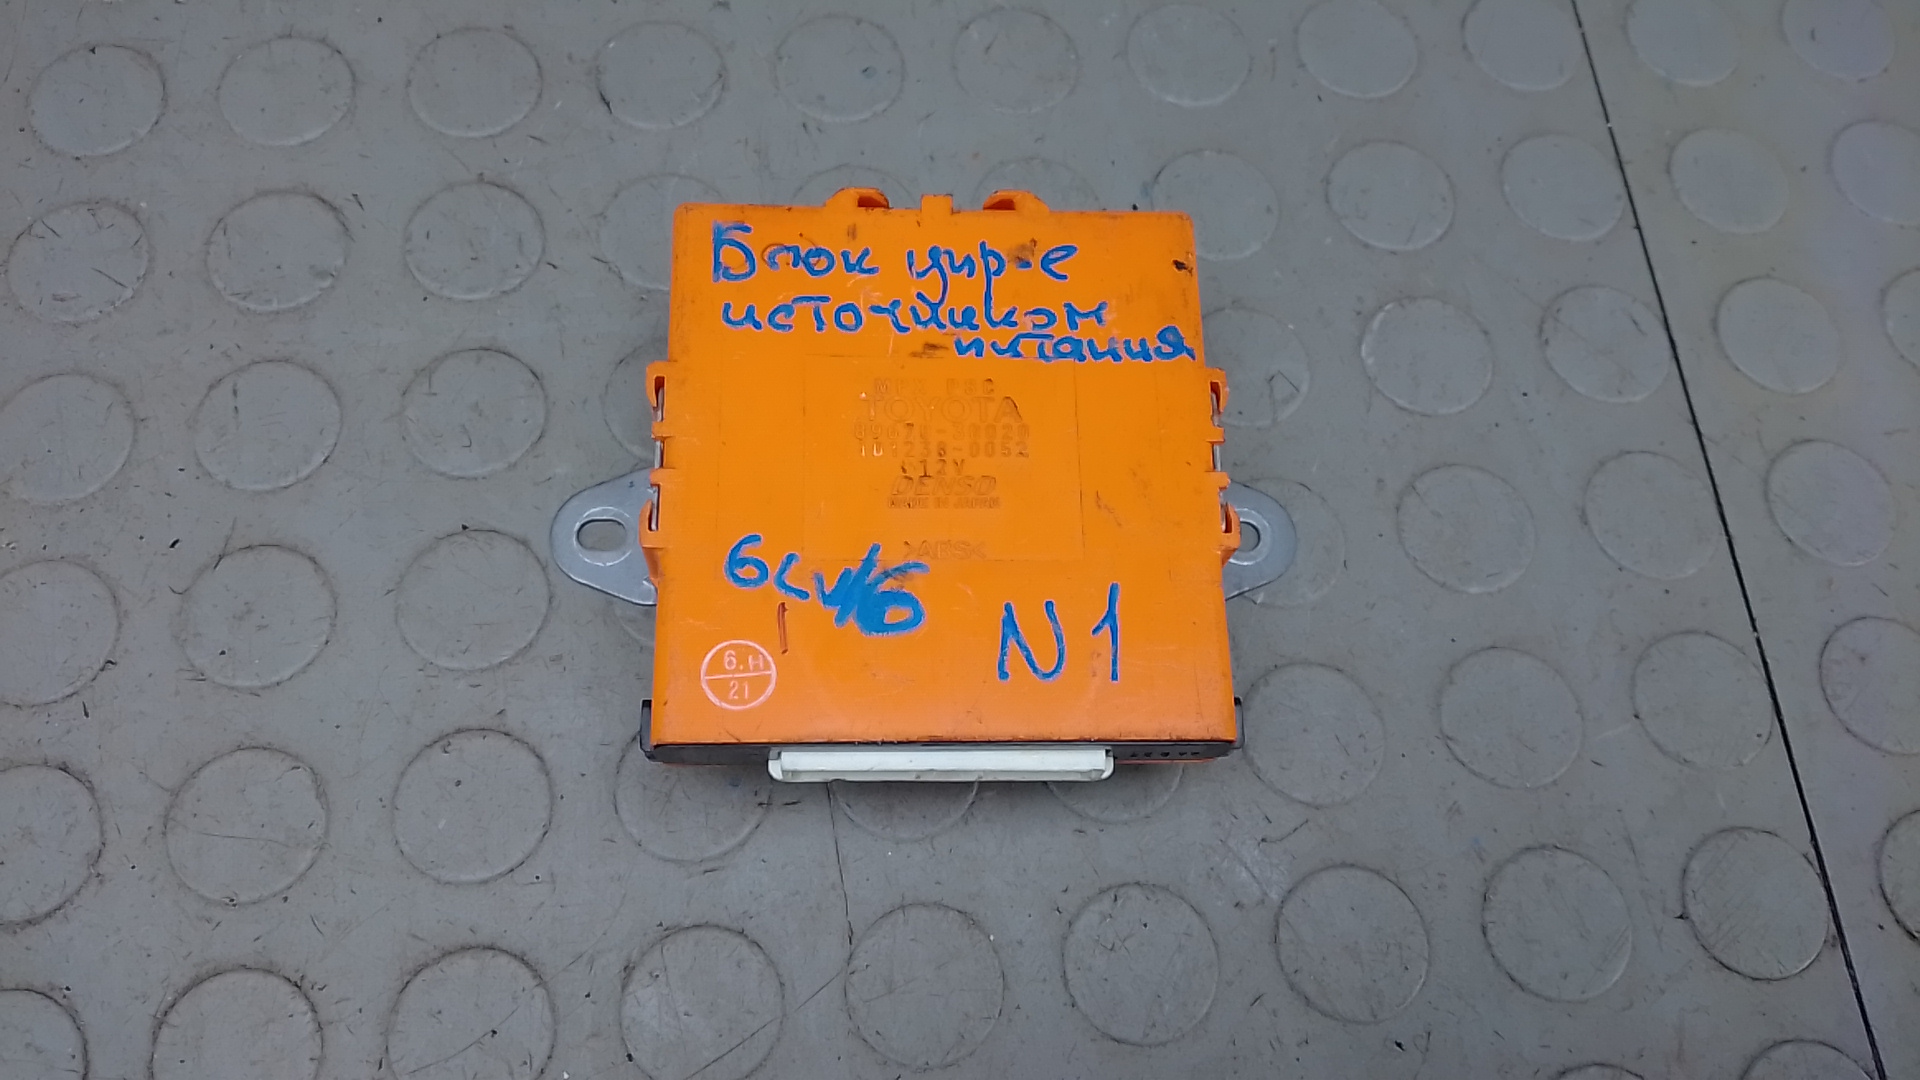 Блок упр-е
источником
питания
MPX PSC
TOYOTA
89670-30020
101238-0052
12V
DENSO
MADE IN JAPAN
>ABS<
N1
6.H
21